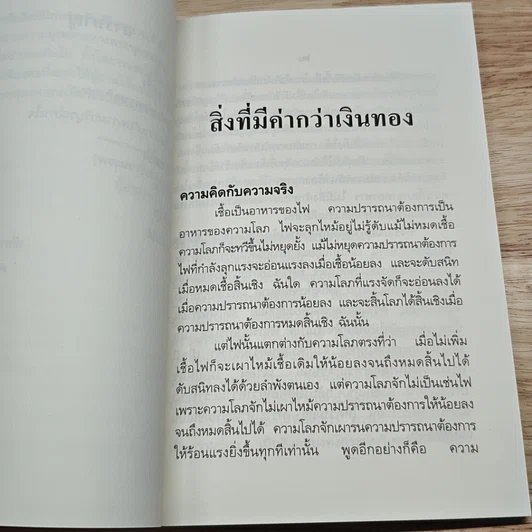 สิ่งที่มีค่ากว่าเงินทอง
ความคิดกับความจริง
เชื้อเป็นอาหารของไฟ ความปรารถนาต้องการเป็น
อาหารของความโลภ ไฟจะลุกไหม้อยู่ไม่รู้ดับแม้ไม่หมดเชื้อ
ความโลภก็จะทวีขึ้นไม่หยุดยั้ง แม้ไม่หยุดความปรารถนาต้องการ
ไฟที่กำลังลุกแรงจะอ่อนแรงลงเมื่อเชื้อน้อยลง และจะดับสนิท
เมื่อหมดเชื้อสิ้นเชิง ฉันใด ความโลภที่แรงจัดก็จะอ่อนลงได้
เมื่อความปรารถนาต้องการน้อยลง และจะสิ้นโลภได้สิ้นเชิงเมื่อ
ความปรารถนาต้องการหมดสิ้นเชิง ฉันนั้น
แต่ไฟนั้นแตกต่างกับความโลภตรงที่ว่า เมื่อไม่เพิ่ม
เชื้อไฟก็จะเผาไหม้เชื้อเดิมให้น้อยลงจนถึงหมดสิ้นไปได้
ดับสนิทลงได้ด้วยลำพังตนเอง แต่ความโลภจักไม่เป็นเช่นไฟ
เพราะความโลภจักไม่เผาไหม้ความปรารถนาต้องการให้น้อยลง
จนถึงหมดสิ้นไปได้ ความโลภจักเผารนความปรารถนาต้องการ
ให้ร้อนแรงยิ่งขึ้นทุกทีเท่านั้น พูดอีกอย่างก็คือ ความ